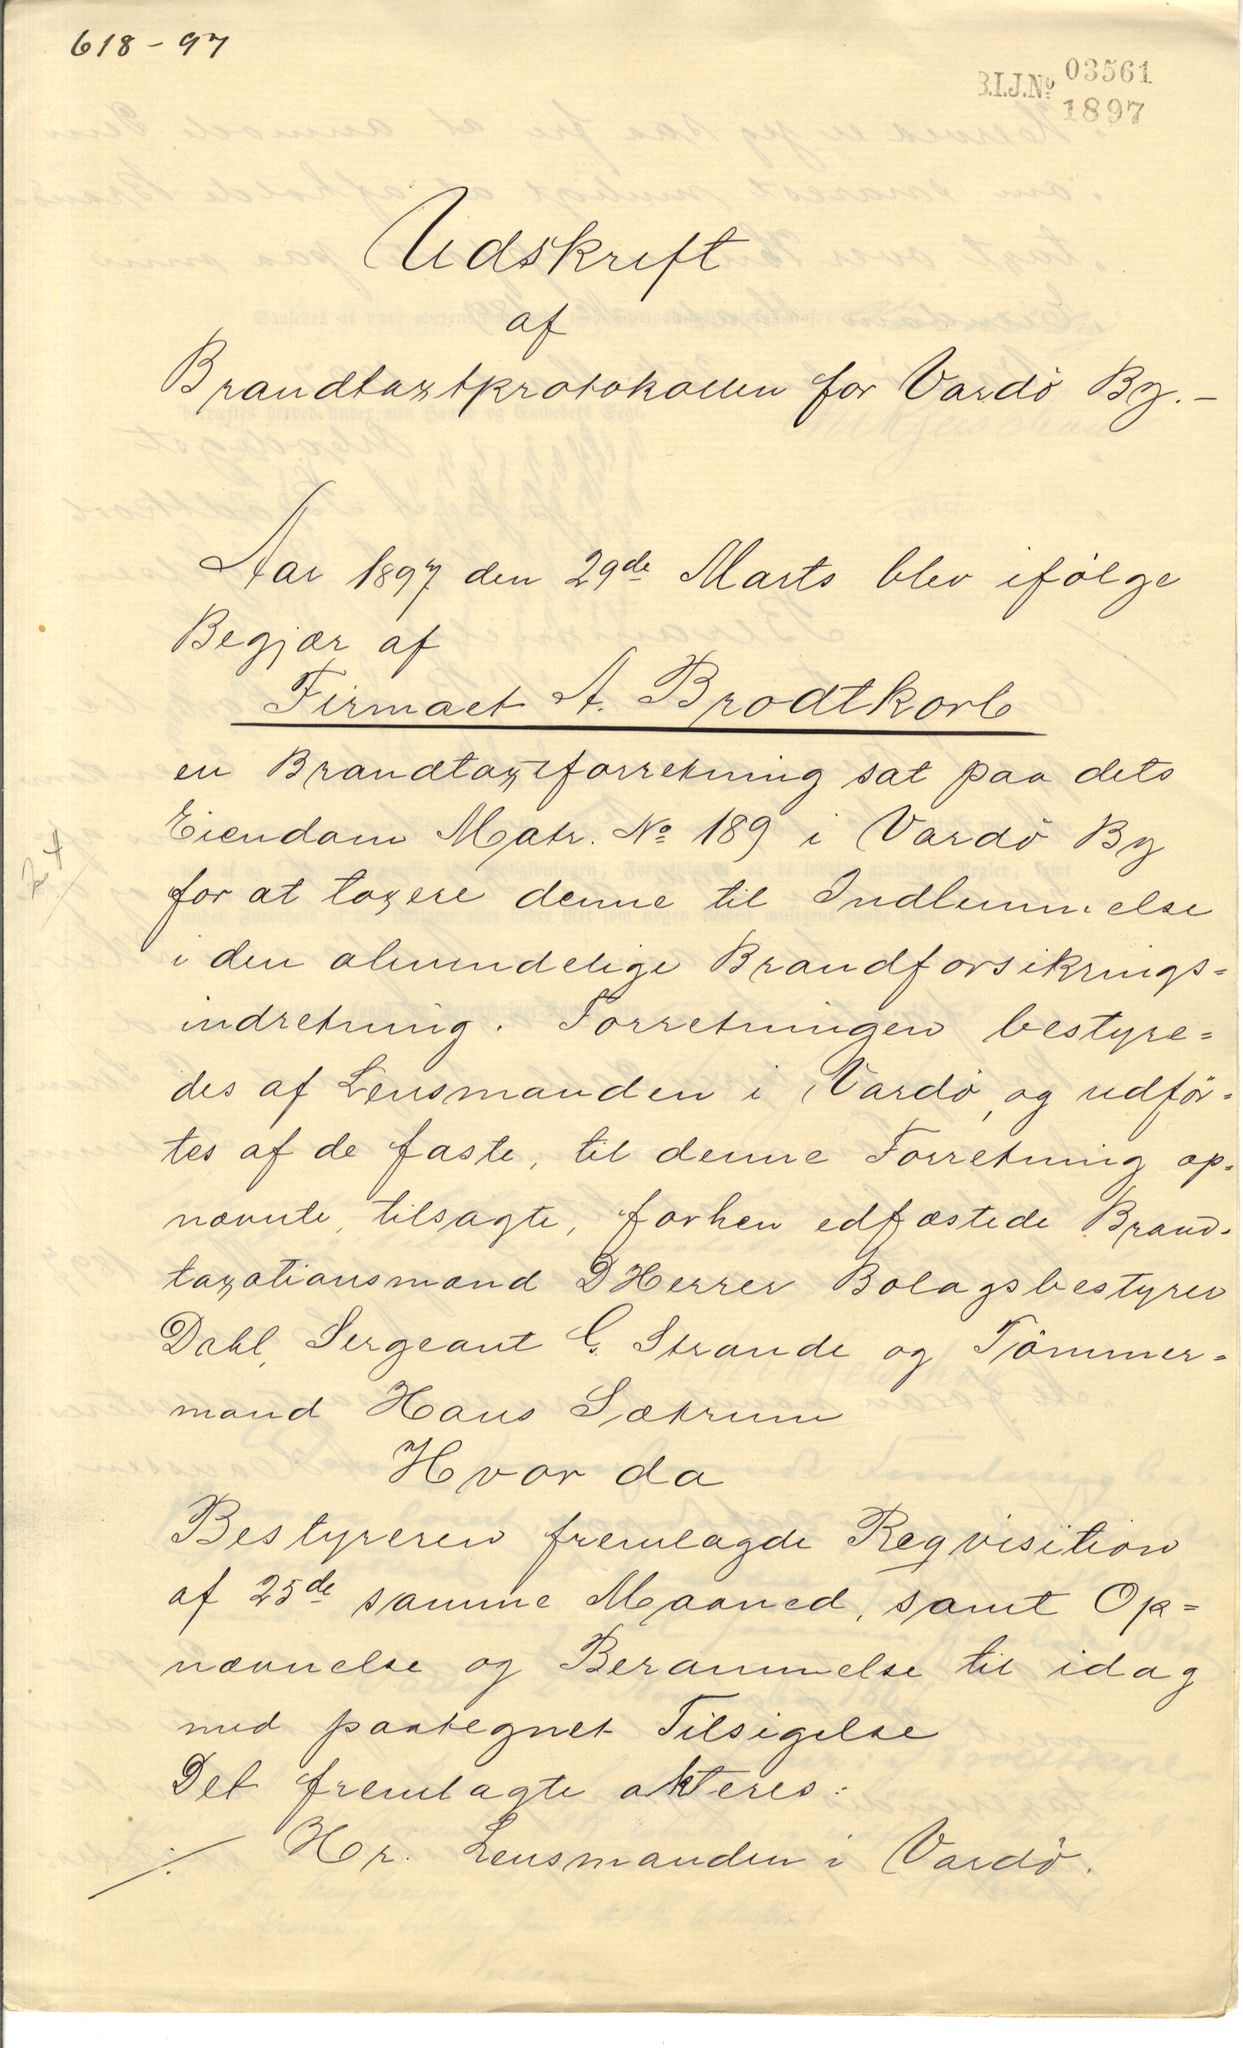 618-97
B.I.J.Nº 03561
1897
Udskrift
af
Brandtaxtkrotokollen for Vardö By.-
Aar 1897 den 29de Marts blev ifölge
Begjær af
Firmaet A. Brodtkorb
en Brandtaxtforretning sat paa dets
Eiendom Matr. Nº 189 i Vardö By
for at taxere denne til Indlemmelse
i den almindelige Brandforsikrings=
indretning. Forretningen bestyre=
des af Lensmanden i Vardö, og udför=
tes af de faste, til denne Forretning op=
nævnte, tilsagte, forhen edfæstede Brand=
taxationsmænd DHerrer Bolagsbestyrer
Dahl, Sergeant C. Strande og Tömmer=
mand Hans Sætrum
Hvor da
Bestyreren fremlagde Reqvisition
af 25de samme Maaned, samt Op=
nævnelse og Berammelse til idag
med paategnet Tilsigelse
Det fremlagte akteres:
Hr. Lensmanden i Vardö.